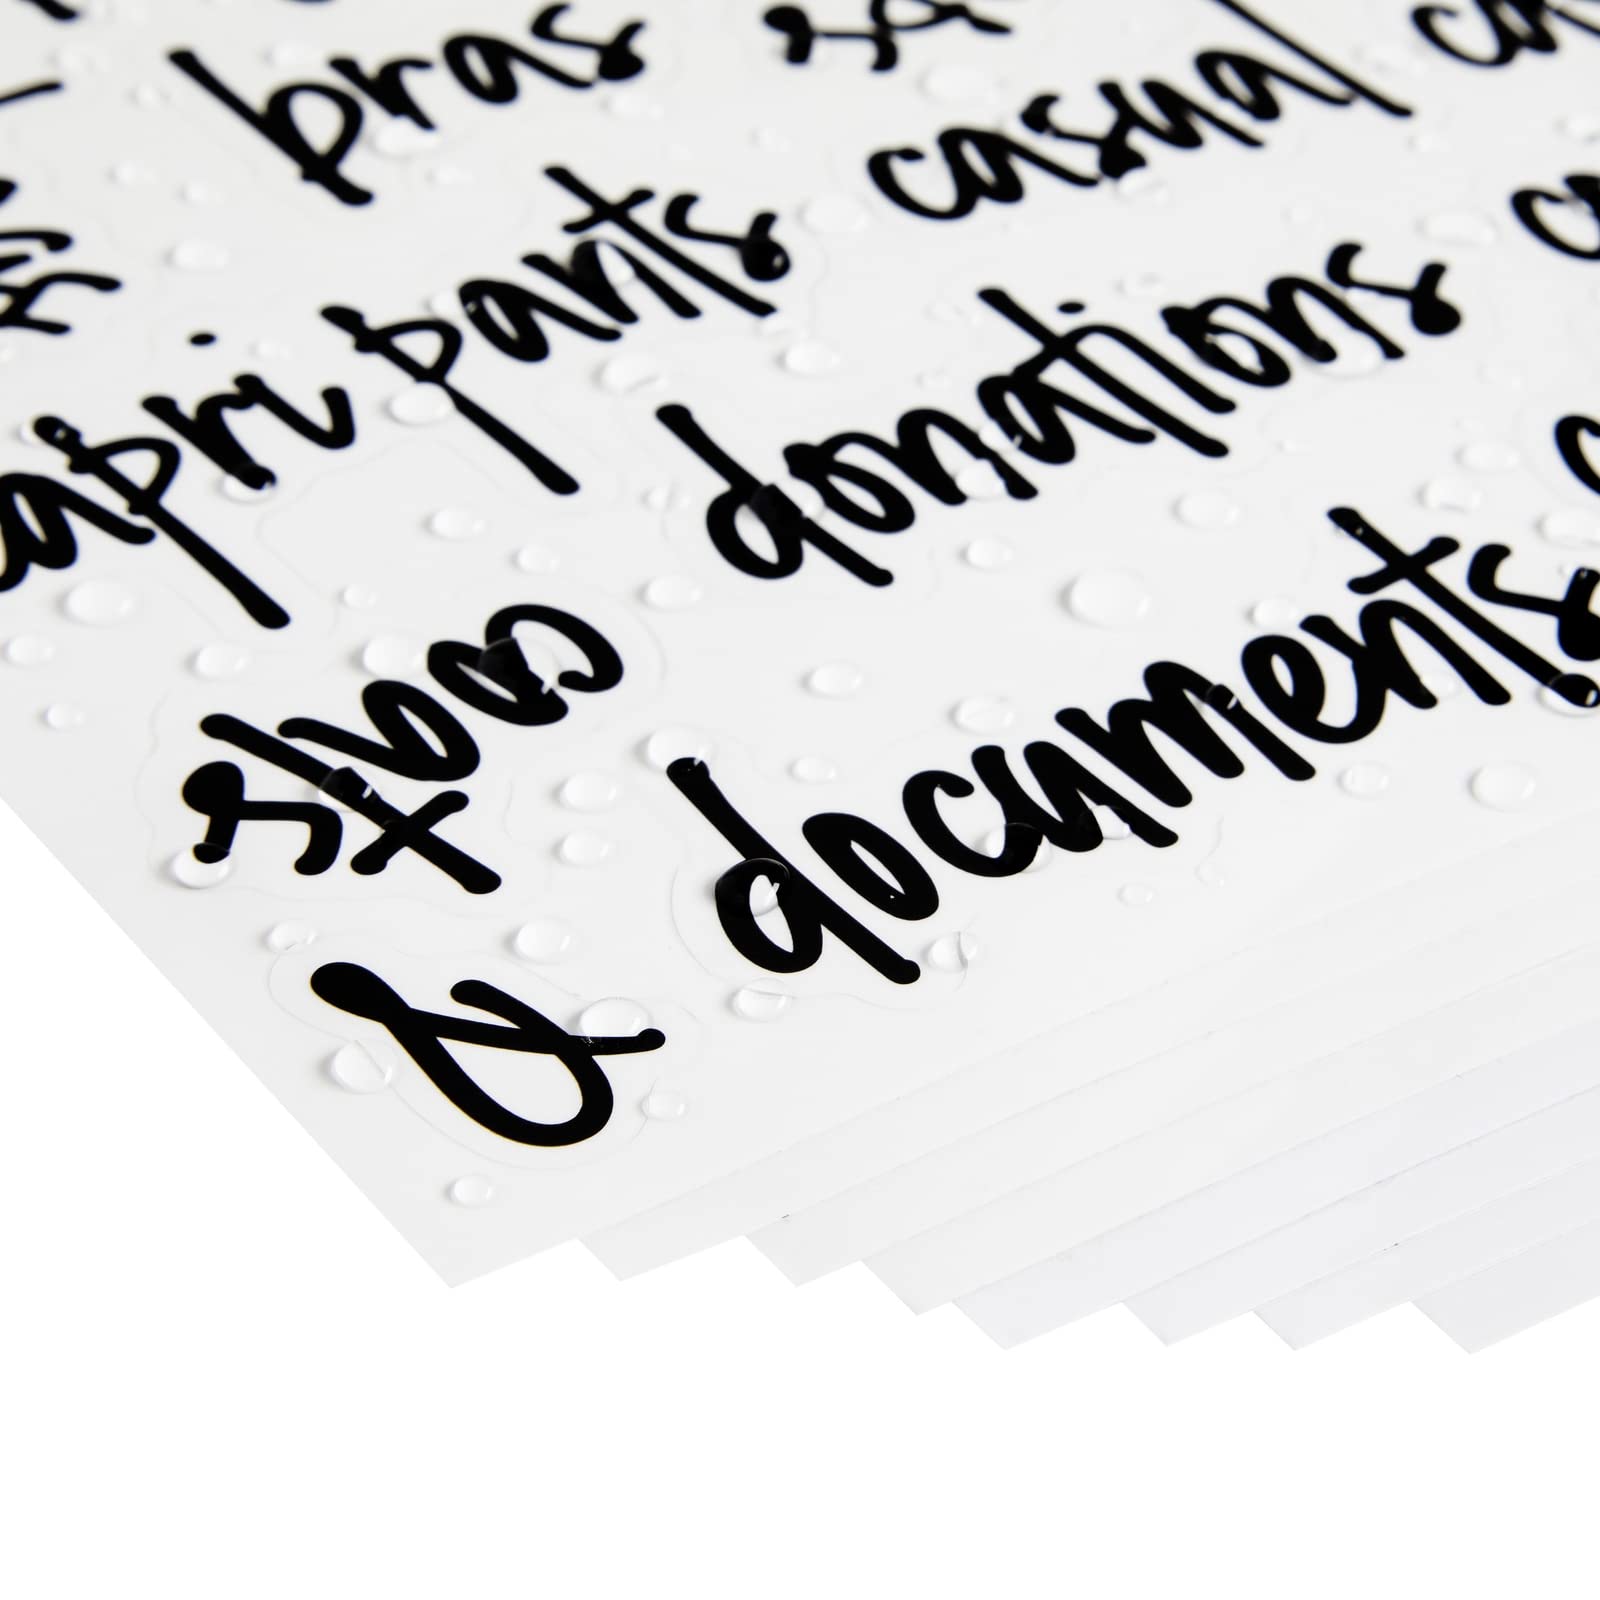 bras
casual
capri pants
donations
coats
documents
&